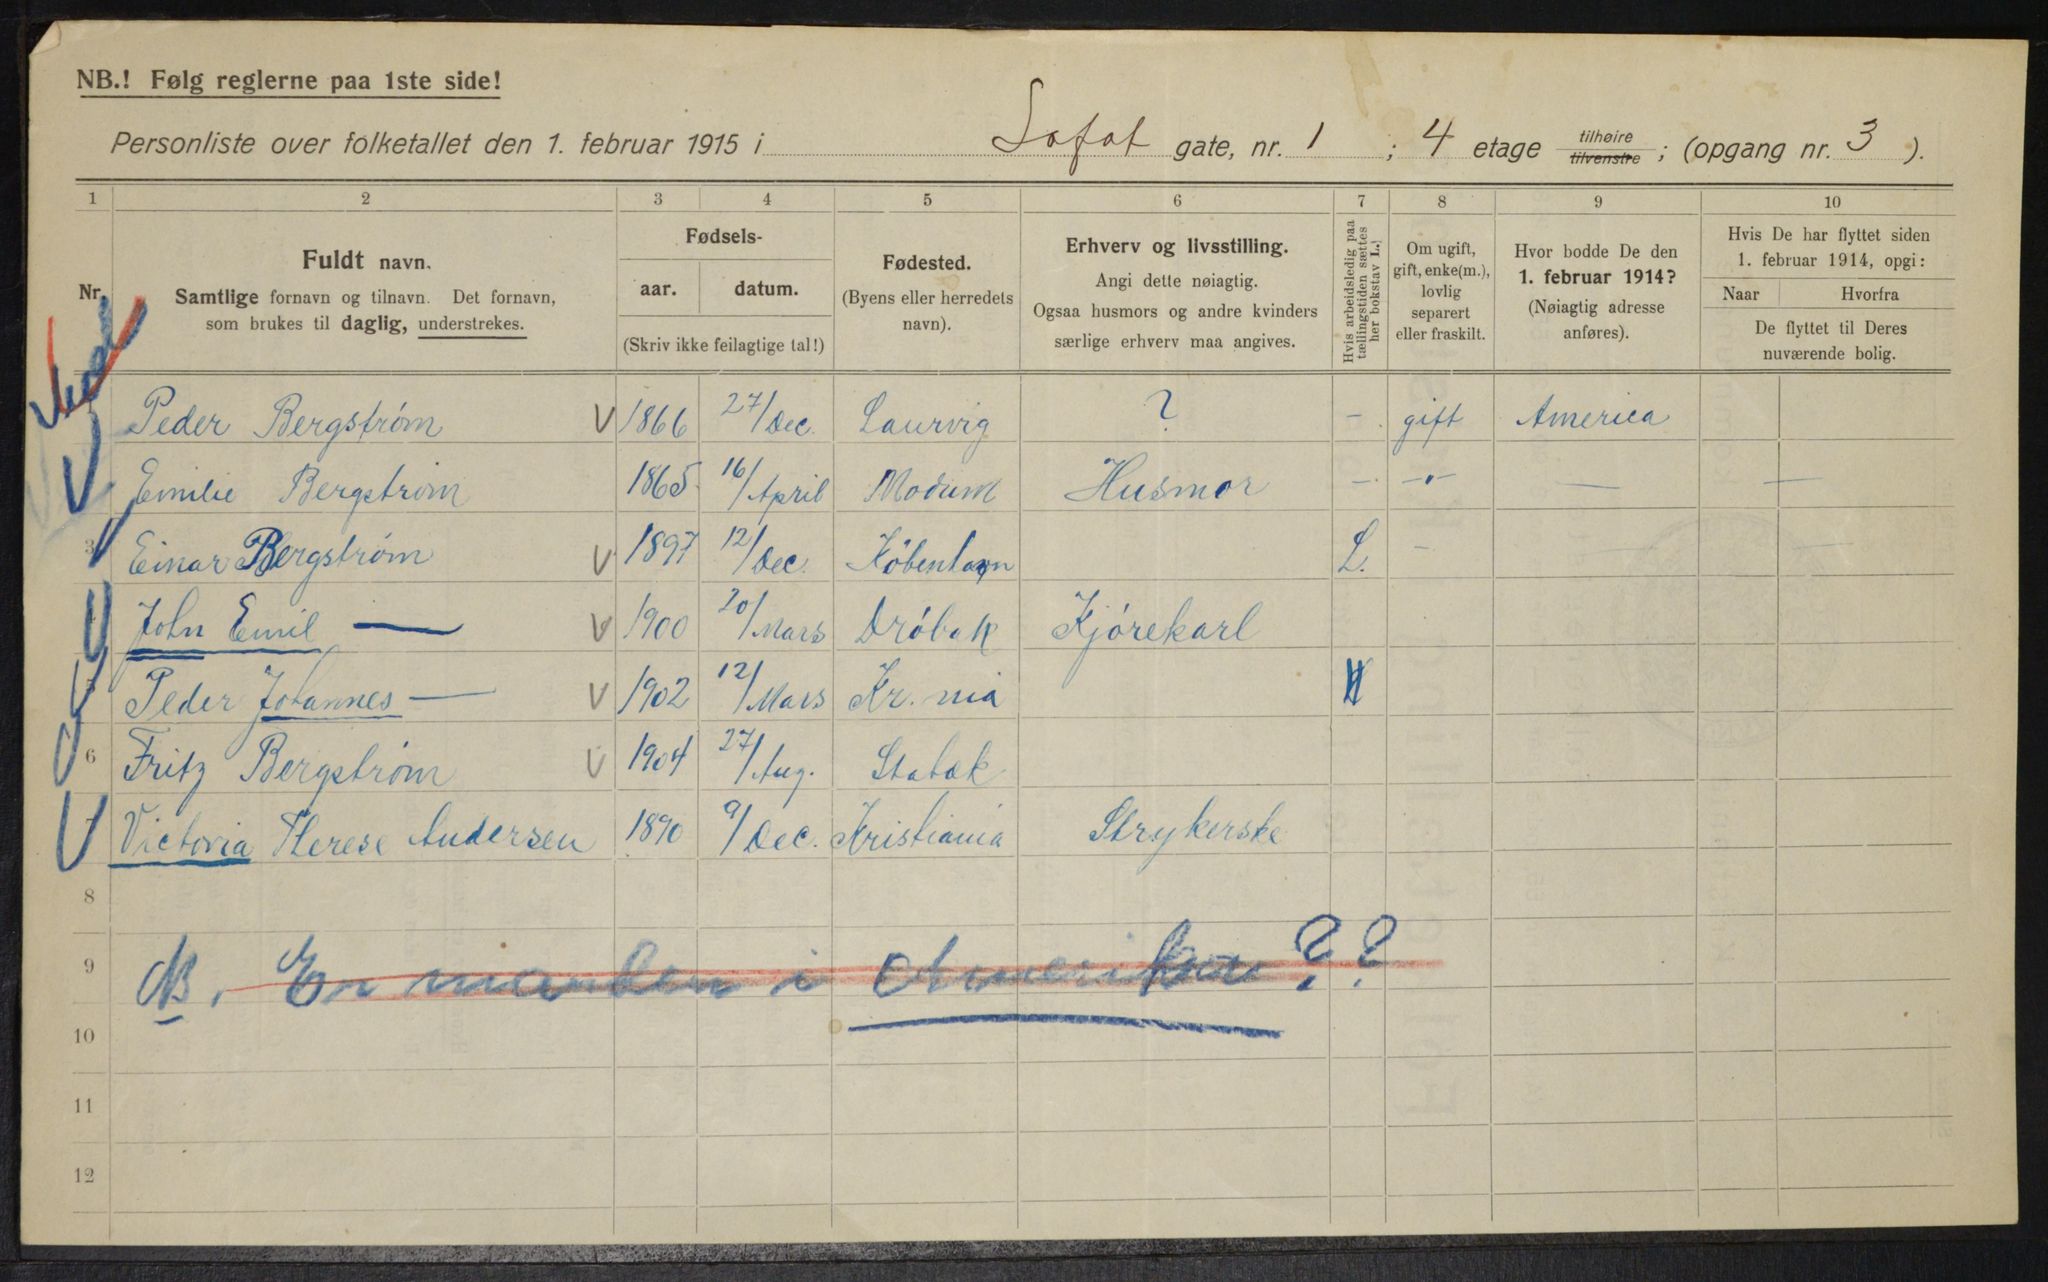 NB.! Følg reglerne paa 1ste side!
Personliste over folketallet den 1. februar 1915 i Sofat gate, nr. 1 ; 4 etage tilhøire tilvenstre ; (opgang nr. 3 ).
1 2 3 4 5 6 7 8 9 10
Nr.
Fuldt navn.
Samtlige fornavn og tilnavn. Det fornavn,
som brukes til daglig, understrekes.
Fødsels-
aar. datum.
(Skriv ikke feilagtige tal!)
Fødested.
(Byens eller herredets
navn).
Erhverv og livsstilling.
Angi dette nøiagtig.
Ogsaa husmors og andre kvinders
særlige erhverv maa angives.
Hvis arbeidsledig paa
tællingstiden sættes
her bokstav L.)
Om ugift,
gift, enke(m.),
lovlig
separert
eller fraskilt.
Hvor bodde De den
1. februar 1914?
(Nøiagtig adresse
anføres).
Hvis De har flyttet siden
1. februar 1914, opgi:
Naar Hvorfra
De flyttet til Deres
nuværende bolig.
Peder Bergstrøm V 1866 27/Dec. Laurvig ? - gift America
Emilie Bergstrøm 1865 16/April Modum Husmor - -"- — —
3 Einar Bergstrøm V 1897 12/Dec. København L. - — —
John Emil — V 1900 20/Mars Drøbak Kjørekarl
5 Peder Johannes — V 1902 12/Mars Kr.nia
6 Fritz Bergstrøm V 1904 27/Aug. Stabæk
7 Victoria Therese Andersen 1890 9/Dec. Kristiania Strykerske
8
9 NB. Er manden i Amerika??
10
11
12